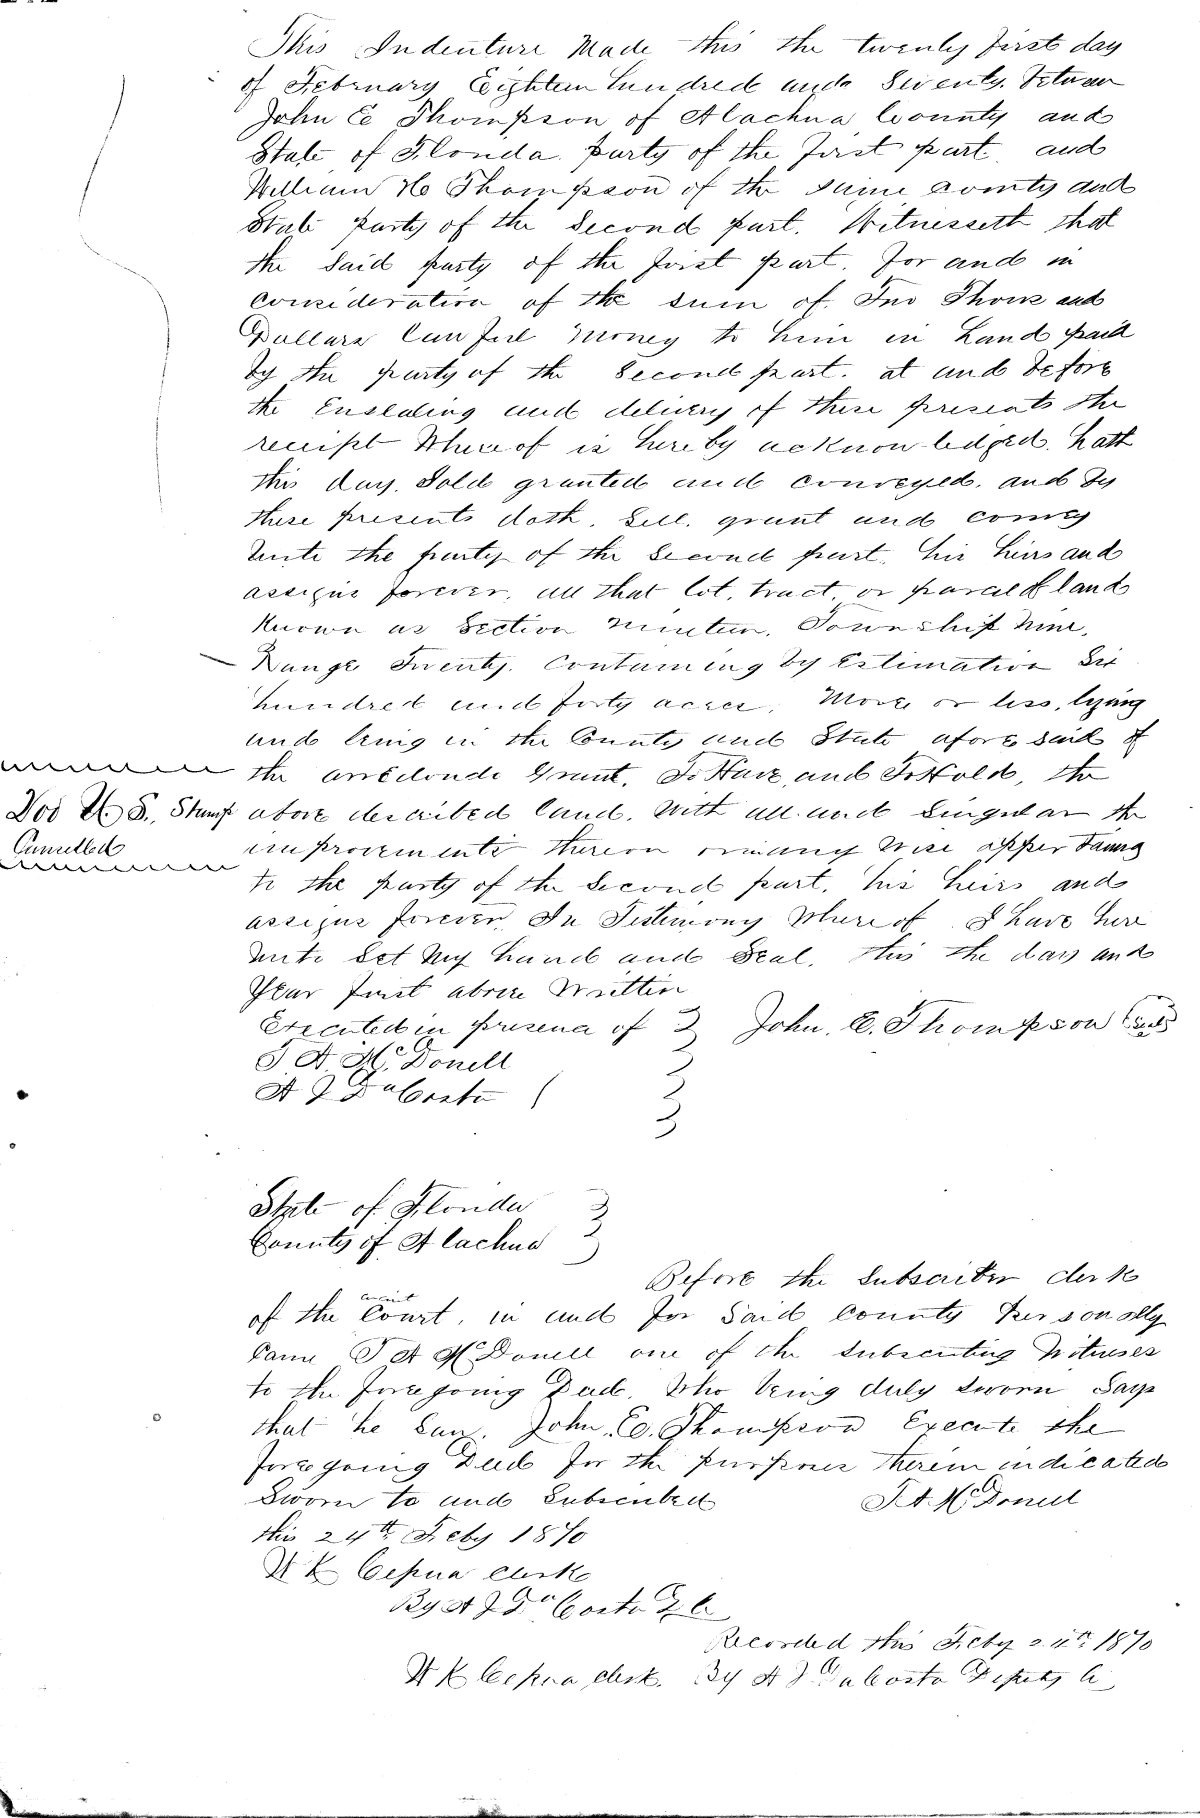 This Indenture Made this the twenty first day
of February Eighteen hundred and Seventy. Between
John E Thompson of Alachua County and
State of Florida party of the first part and
William H Thompson of the same county and
State party of the second part. Witnesseth that
the Said party of the first part. for and in
consideration of the sum of. Two Thous and
Dollars Lawful Money to him in hand paid
by the party of the Second part. at and before
the Ensealing and delivery of these presents the
receipt Whereof is hereby acknow ledged. hath
this day. Sold granted and conveyed. and by
these presents doth. Sell. grant and convey
unto the party of the Second part. his heirs and
assigns forever. all that lot, tract, or parcel of land
Known as Section Nineteen. Township Nine.
Range Twenty. Containing by Estimation Six
hundred and forty acres. More or less, lying
and being in the County and State afore said of
the arredondo Grant. To Have, and To Hold, the
U. S. Stamp
Cancelled
above described land. With all and Singular the
improvements thereon or in any wise apper taining
to the party of the Second part. his heirs and
assigns forever. In Testimony Whereof I have here
unto Set My hand and Seal. this the day and
Year first above Written
Executed in presence of John. E. Thompson (Seal)
T A McDonell
A J DaCosta
State of Florida
County of Alachua
Before the Subscriber clerk
of the circuit Court, in and for Said County personally
Came T A McDonell one of the subscribing Witnesses
to the foregoing Deed. Who being duly sworn Says
that he Saw. John. E. Thompson Execute the
foregoing Deed for the purposes therein indicated
Sworn to and Subscribed T. A. McDonell
this 24th Feby 1870
H K Cessna clerk
By A J DaCosta D C
Recorded this Feby 24th 1870
H K Cessna clerk. By A J DaCosta Deputy C